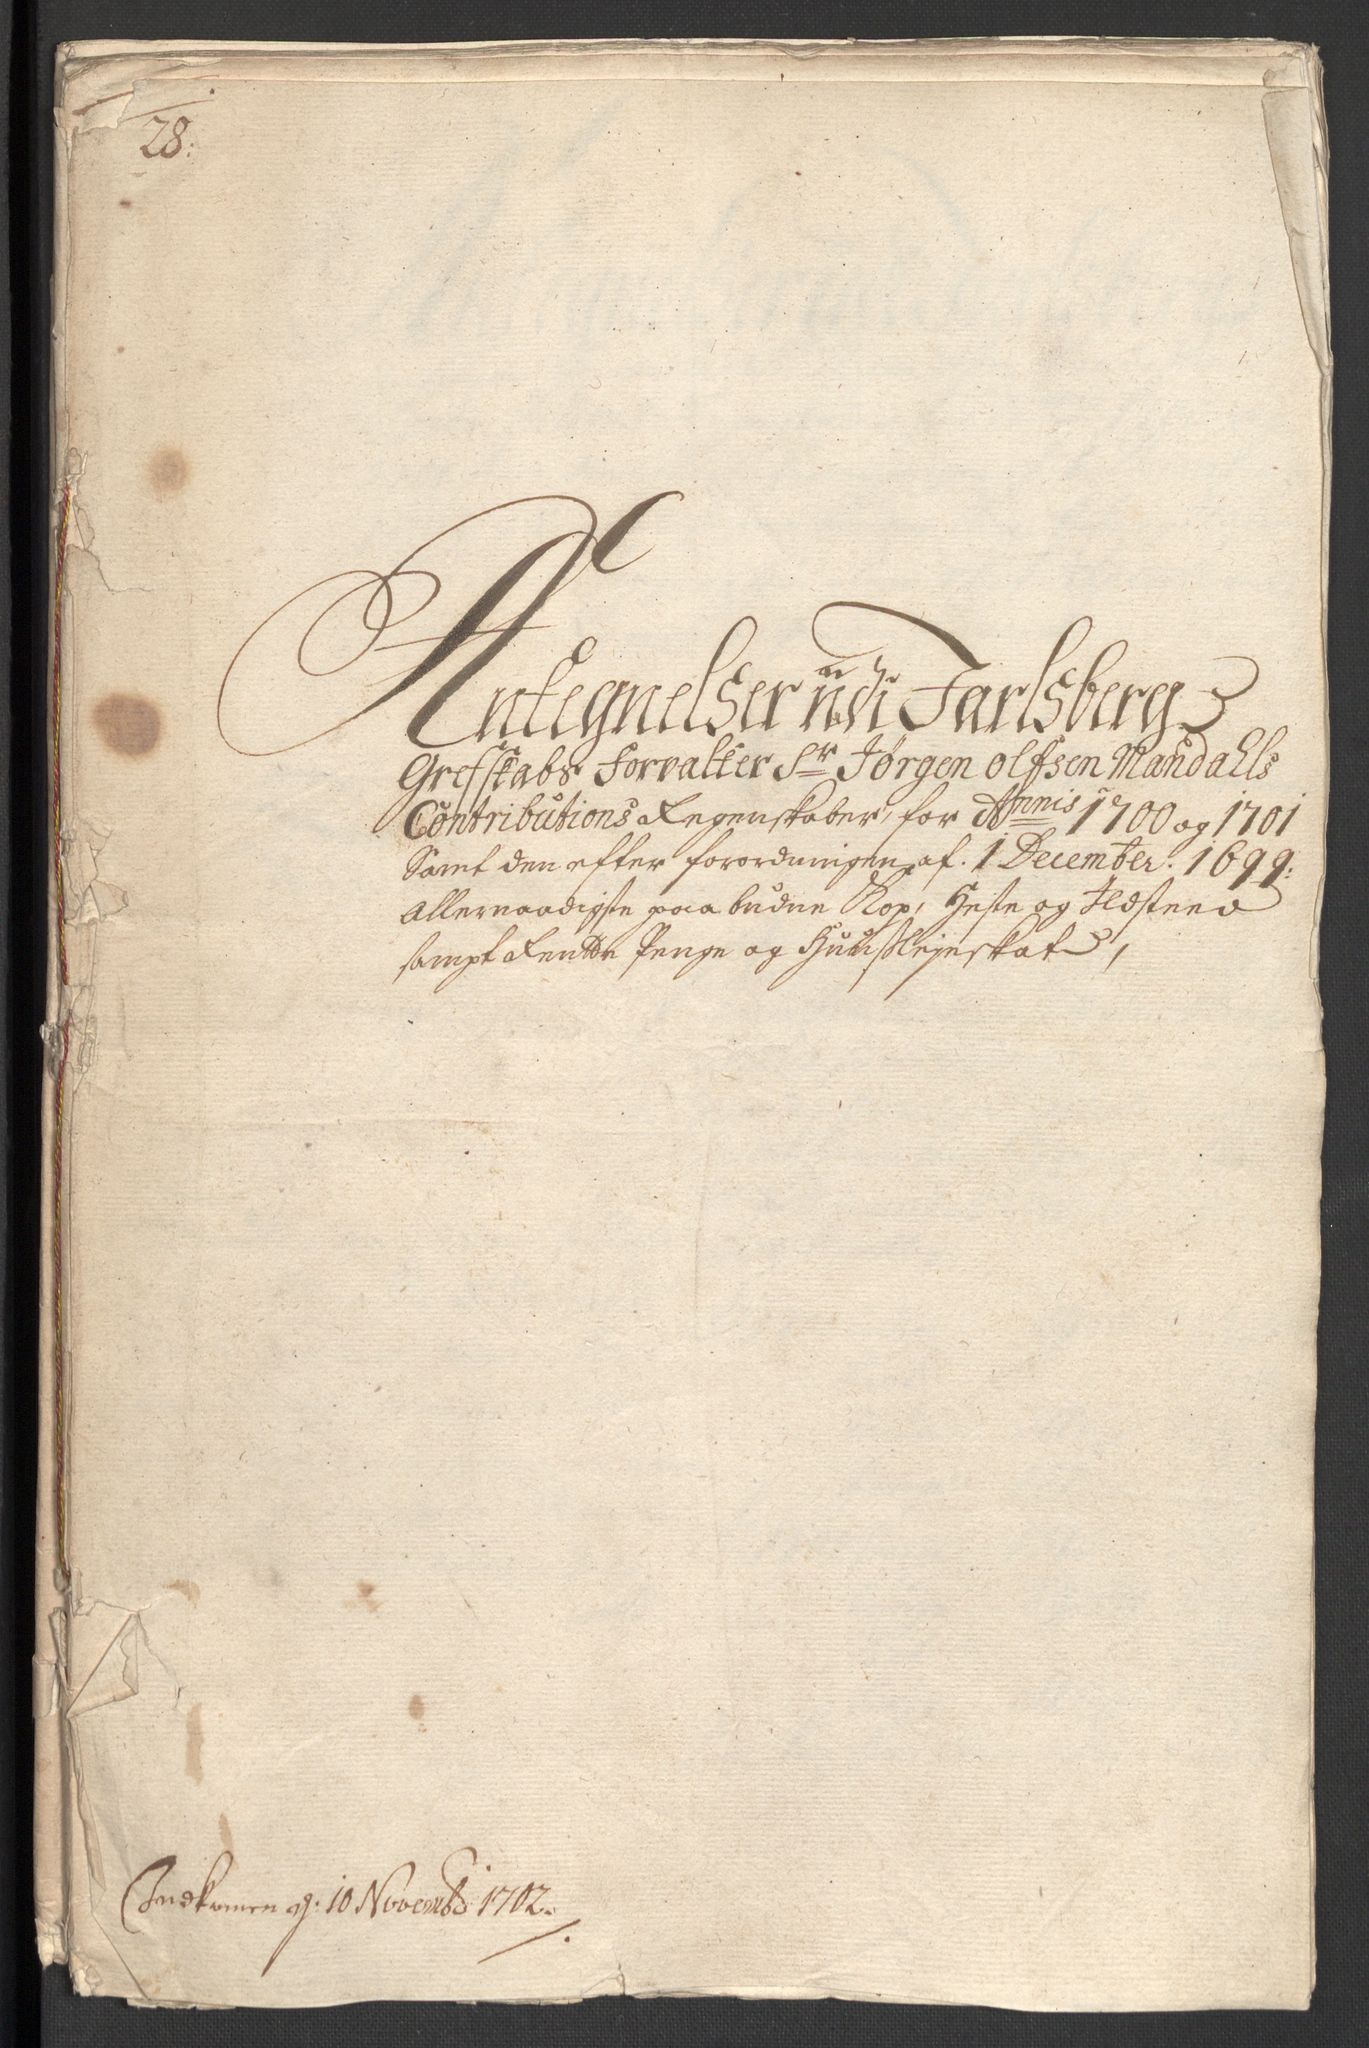 28:
Antegnelser udi Jarlsberg
Grefskabs Forvalter Sr Jørgen Olfsen Mandahls
Contributions Regenskaber, for Annis 1700 og 1701
Samt den efter forordningen af. 1 December. 1699:
allernaadigste paabudne Kop, Heste og Ildsteed
sampt Rentte Penge og Huusslejeskat,
Indkomen d: 10 Novembr 1702.